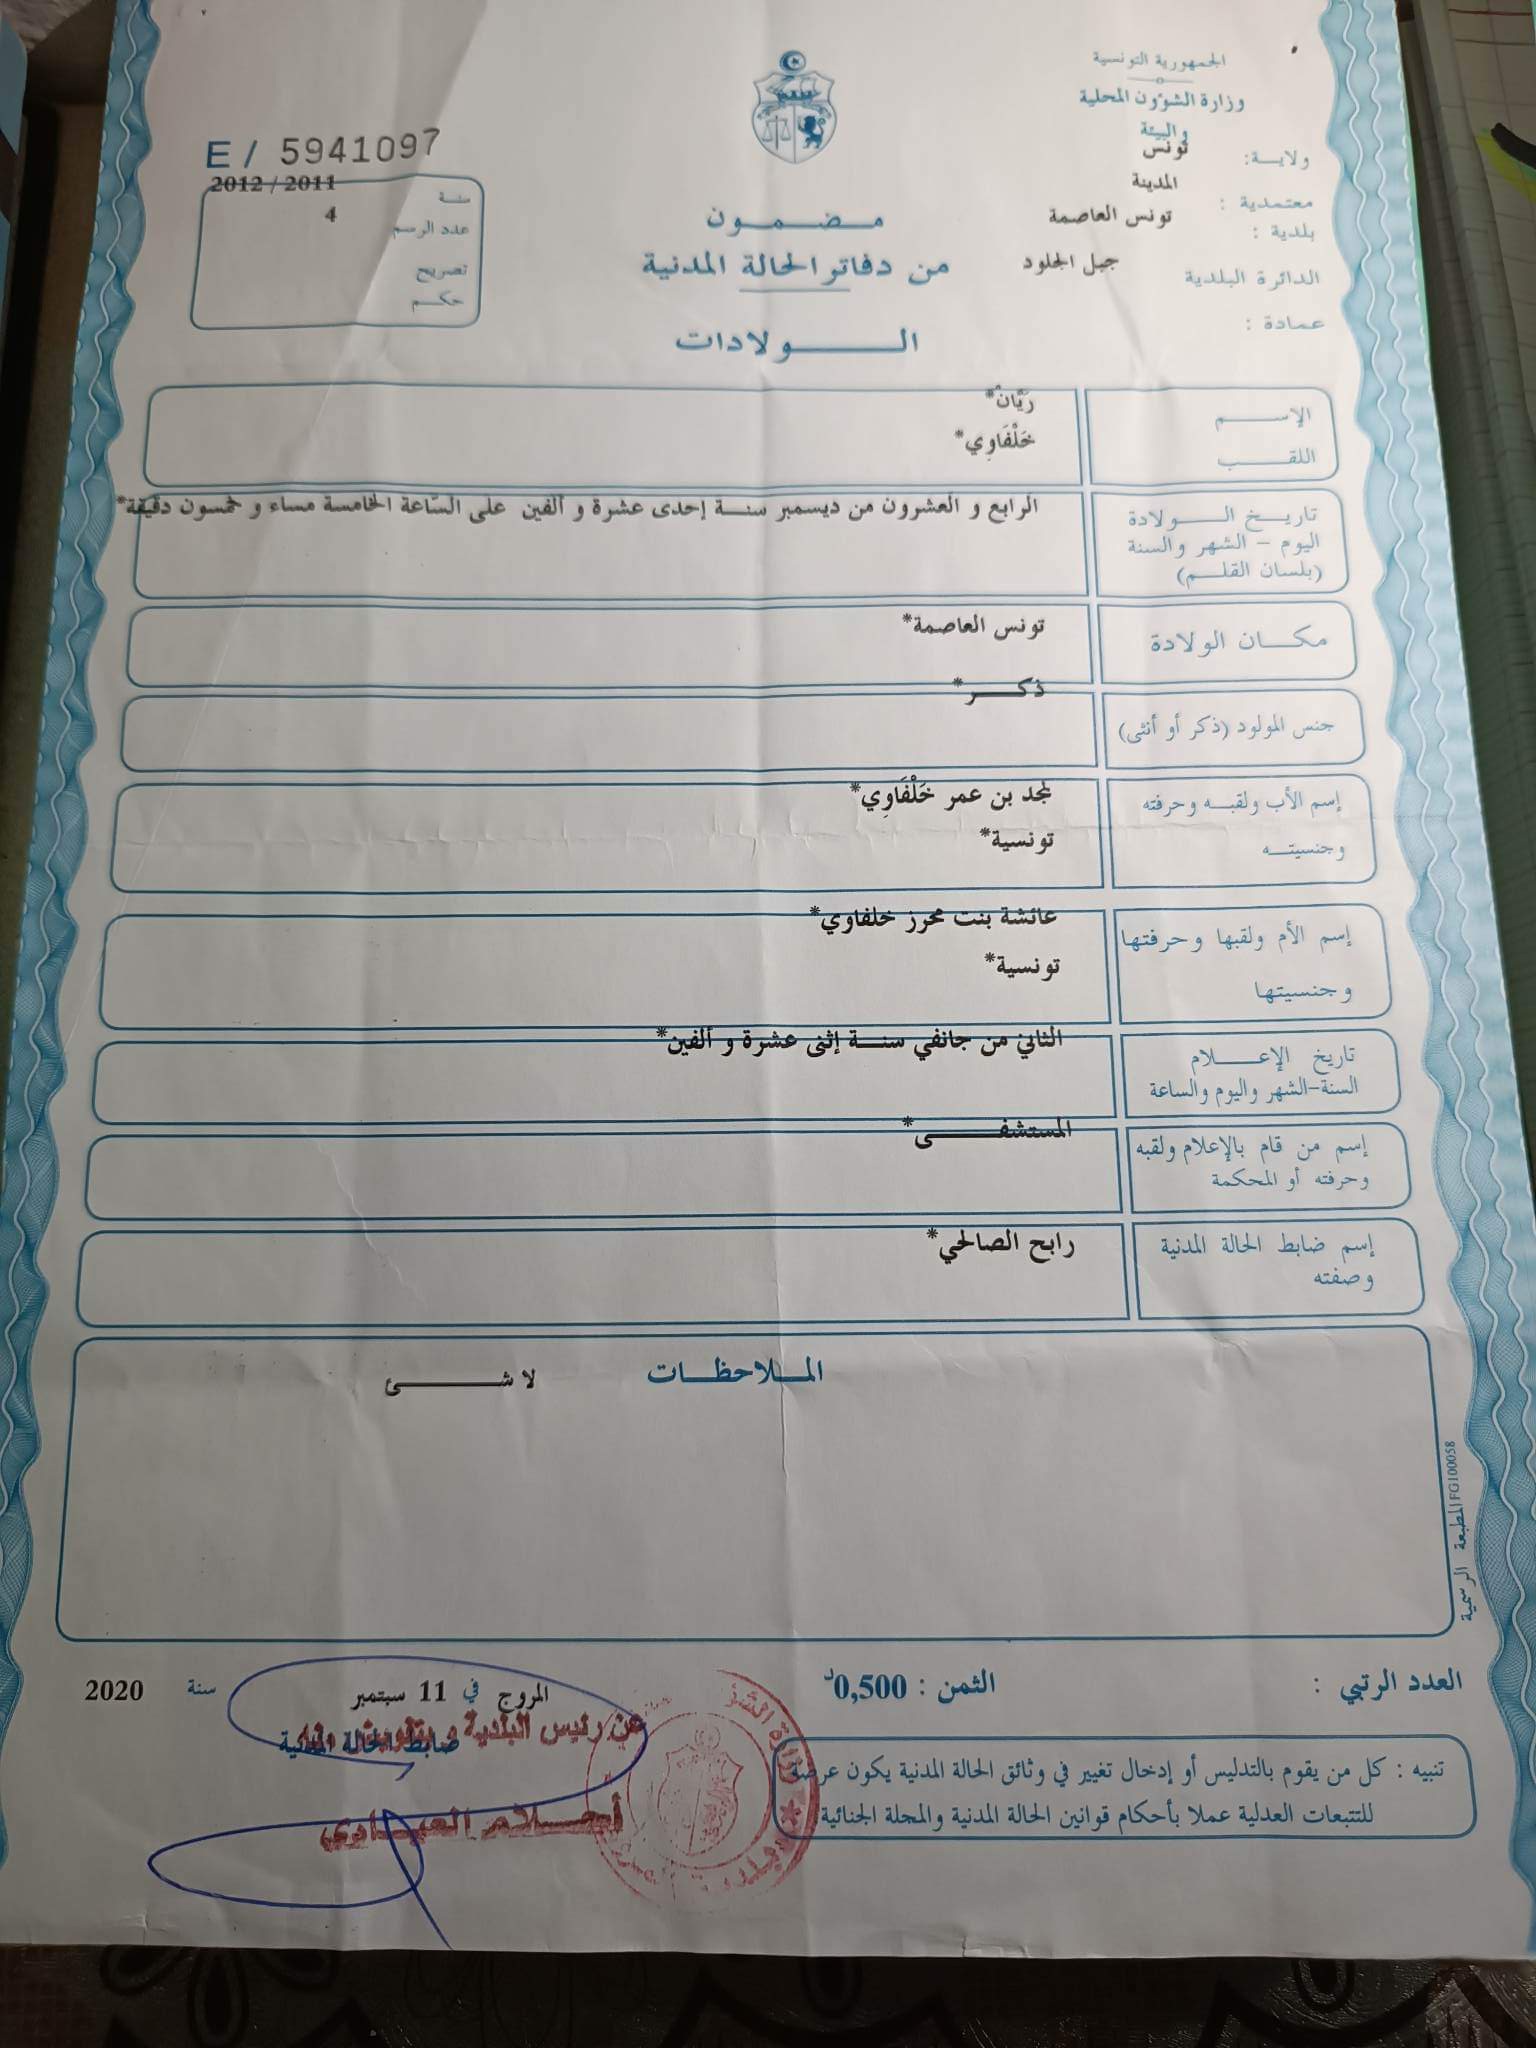 الجمهورية التونسية
وزارة الشؤون المحلية
والبيئة
ولاية: تونس
معتمدية : المدينة
بلدية : تونس العاصمة
الدائرة البلدية جبل الجلود
عمادة :
E / 5941097
سنة 2012 / 2011
عدد الرسم 4
تصريح
حكم
مضمون
من دفاتر الحالة المدنية
الولادات
الإسم رَيَّان*
اللقب خَلْفَاوِي*
تاريخ الولادة الرابع و العشرون من ديسمبر سنة إحدى عشرة و ألفين على السّاعة الخامسة مساء و خمسون دقيقة*
اليوم - الشهر والسنة
(بلسان القلم)
مكان الولادة تونس العاصمة*
جنس المولود (ذكر أو أنثى) ذكر*
إسم الأب ولقبه وحرفته لمجد بن عمر خَلْفَاوِي*
وجنسيته تونسية*
إسم الأم ولقبها وحرفتها عائشة بنت محرز خلفاوي*
وجنسيتها تونسية*
تاريخ الإعلام الثاني من جانفي سنة إثنى عشرة و ألفين*
السنة-الشهر واليوم والساعة
إسم من قام بالإعلام ولقبه المستشفى*
وحرفته أو المحكمة
إسم ضابط الحالة المدنية رابح الصالحي*
وصفته
الملاحظات
لا شئ
المطبعة الرسمية FG100058
العدد الرتبي : الثمن : 0,500د
المروج في 11 سبتمبر سنة 2020
عن رئيس البلدية و بتفويض منه
ضابط الحالة المدنية
أحلام العبادي
تنبيه : كل من يقوم بالتدليس أو إدخال تغيير في وثائق الحالة المدنية يكون عرضة
للتتبعات العدلية عملا بأحكام قوانين الحالة المدنية والمجلة الجنائية